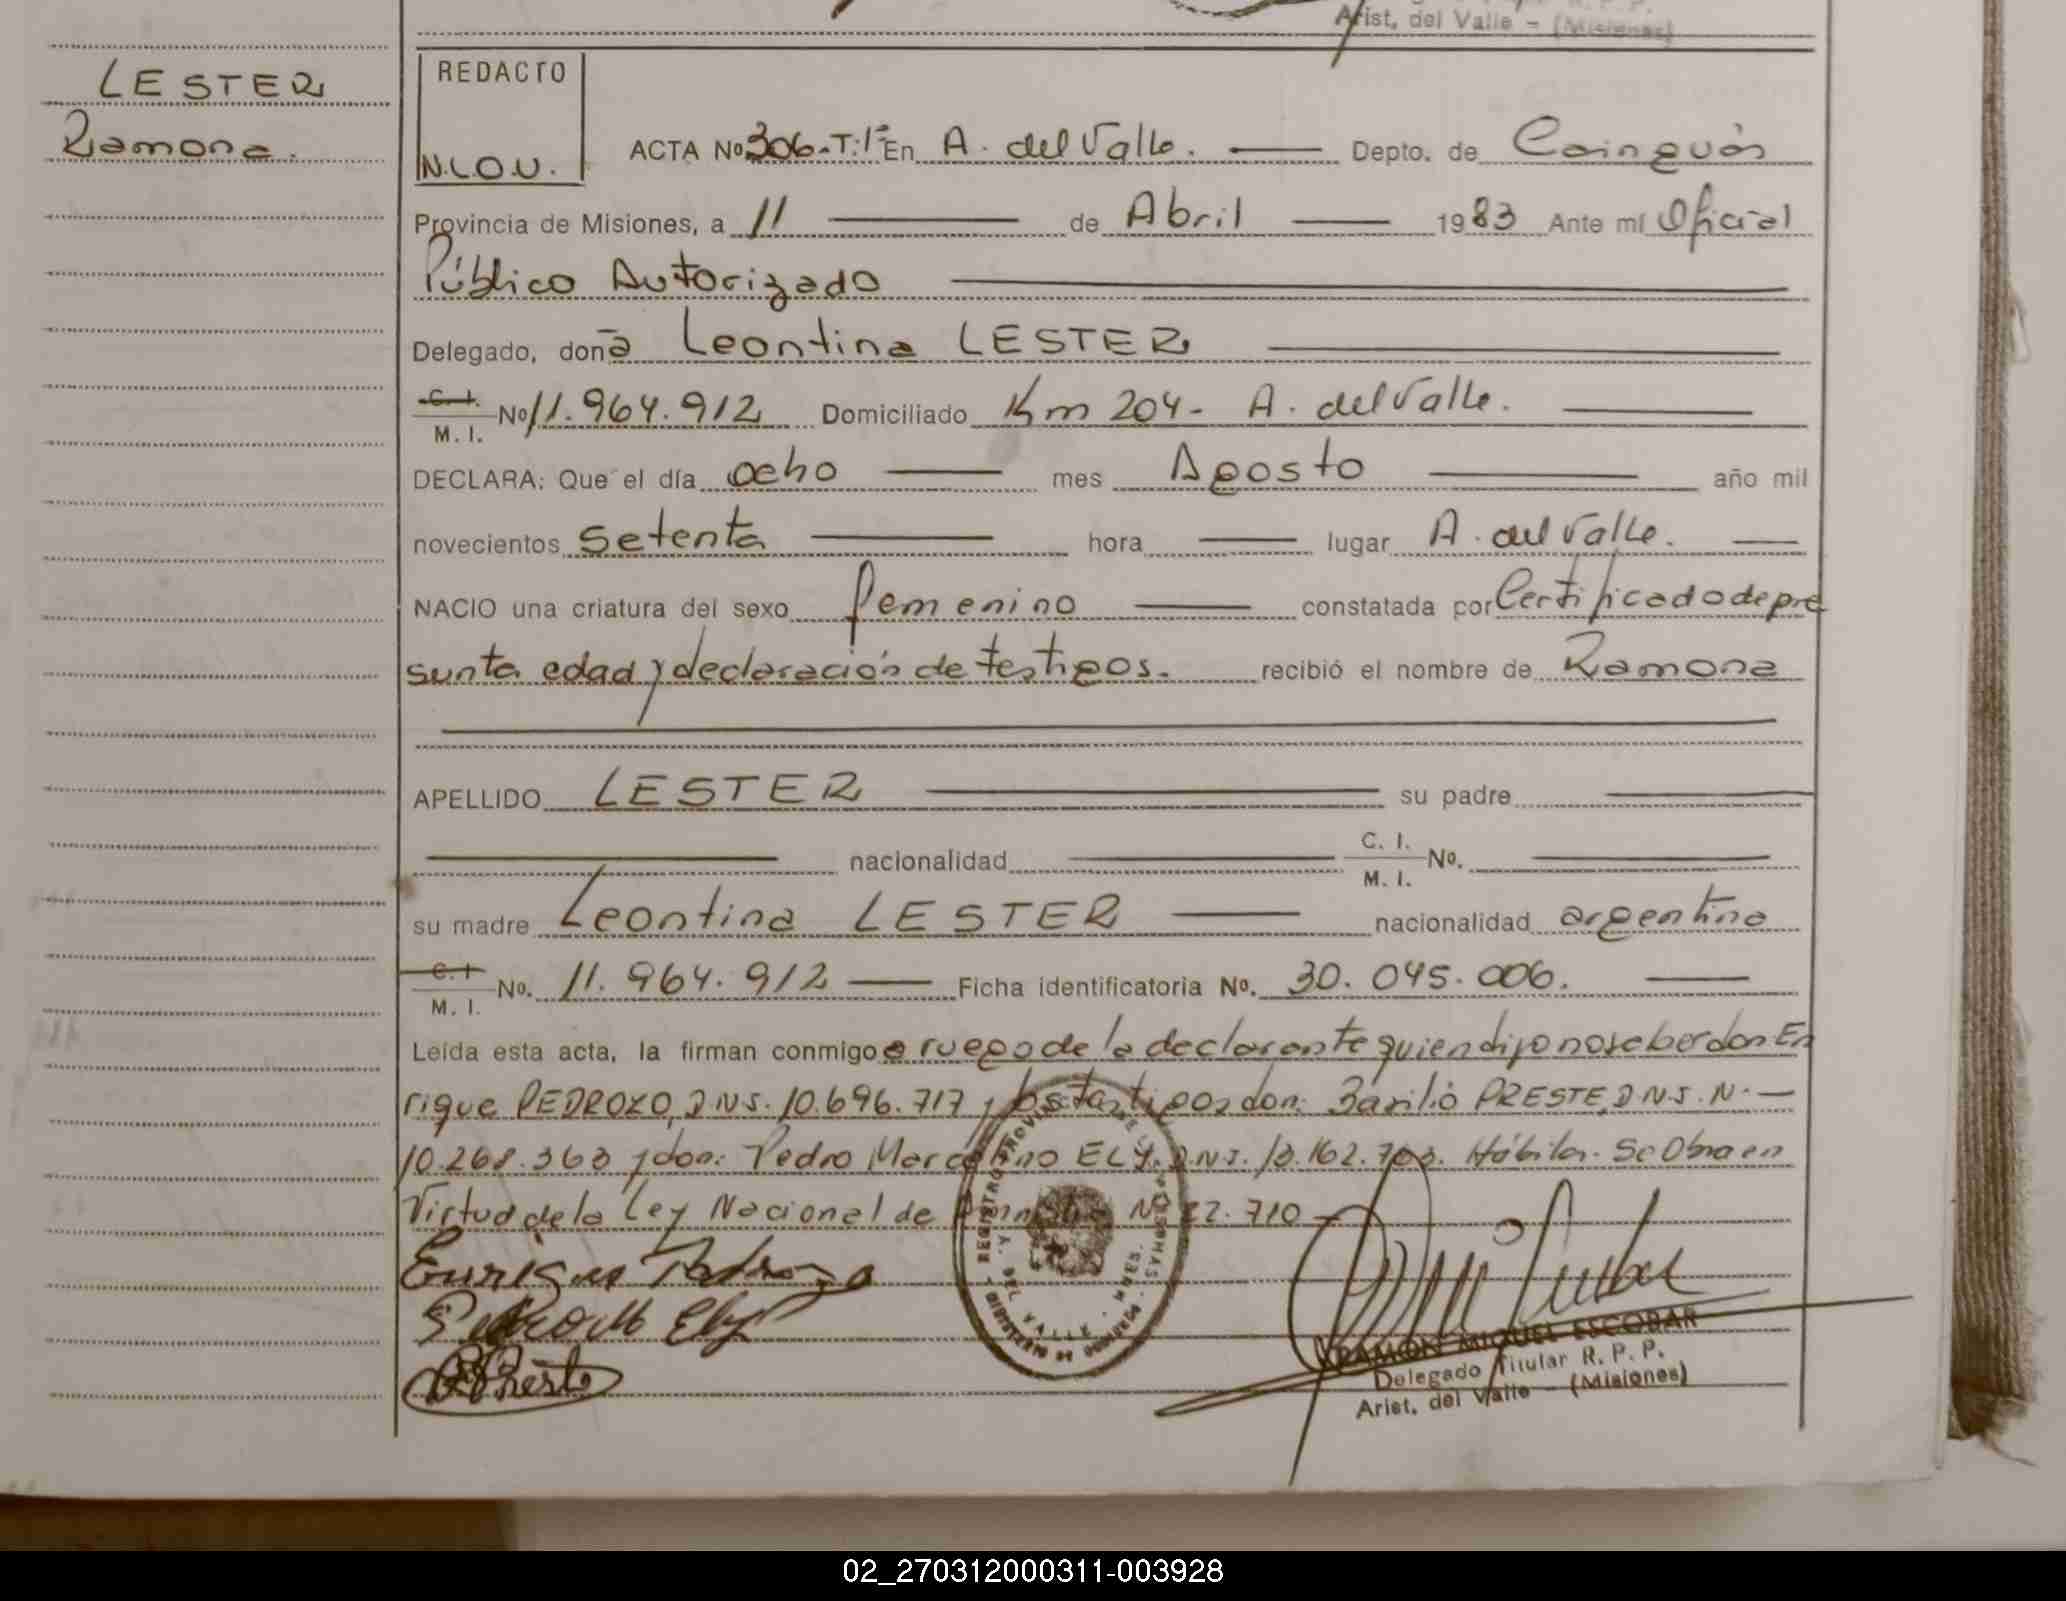 Arist. del Valle - (Misiones)
LESTER
Ramona.
REDACTO
N.L.O.U.
ACTA No 306-T:1º En A. del Valle. Depto. de Cainguás
Provincia de Misiones, a 11 de Abril 1983 Ante mí Oficial
Público Autorizado
Delegado, doña Leontina LESTER
C. I. M. I. No 11.964.912 Domiciliado Km 204- A. del Valle.
DECLARA: Que el día ocho mes Agosto año mil
novecientos setenta hora lugar A. del Valle.
NACIO una criatura del sexo femenino constatada por Certificado de pre
sunta edad y declaración de testigos. recibió el nombre de Ramona
APELLIDO LESTER su padre
nacionalidad C. I. M. I. No.
su madre Leontina LESTER nacionalidad argentina
C. I. M. I. No. 11.964.912 Ficha identificatoria No. 30.045.006.
Leída esta acta, la firman conmigo a ruego de la declarante quien dijo no saber don En
rique PEDROZO, D.N.I. 10.696.717 y los testigos, don: Basilio PRESTE, D.N.I. N.-
10.268.363 y don: Pedro Marcelino ELY. D.N.I. 13.162.703. Hábiles. Se Obra en
Virtud de la Ley Nacional de Amnistía Nº 22.710
Enrique Pedrozo
Pedro M Ely
B Preste
REGISTRO PROVINCIAL DE LAS PERSONAS
A. DEL VALLE - MNES.
RAMON MIGUEL ESCOBAR
Delegado Titular R. P. P.
Arist. del Valle - (Misiones)
02_270312000311-003928